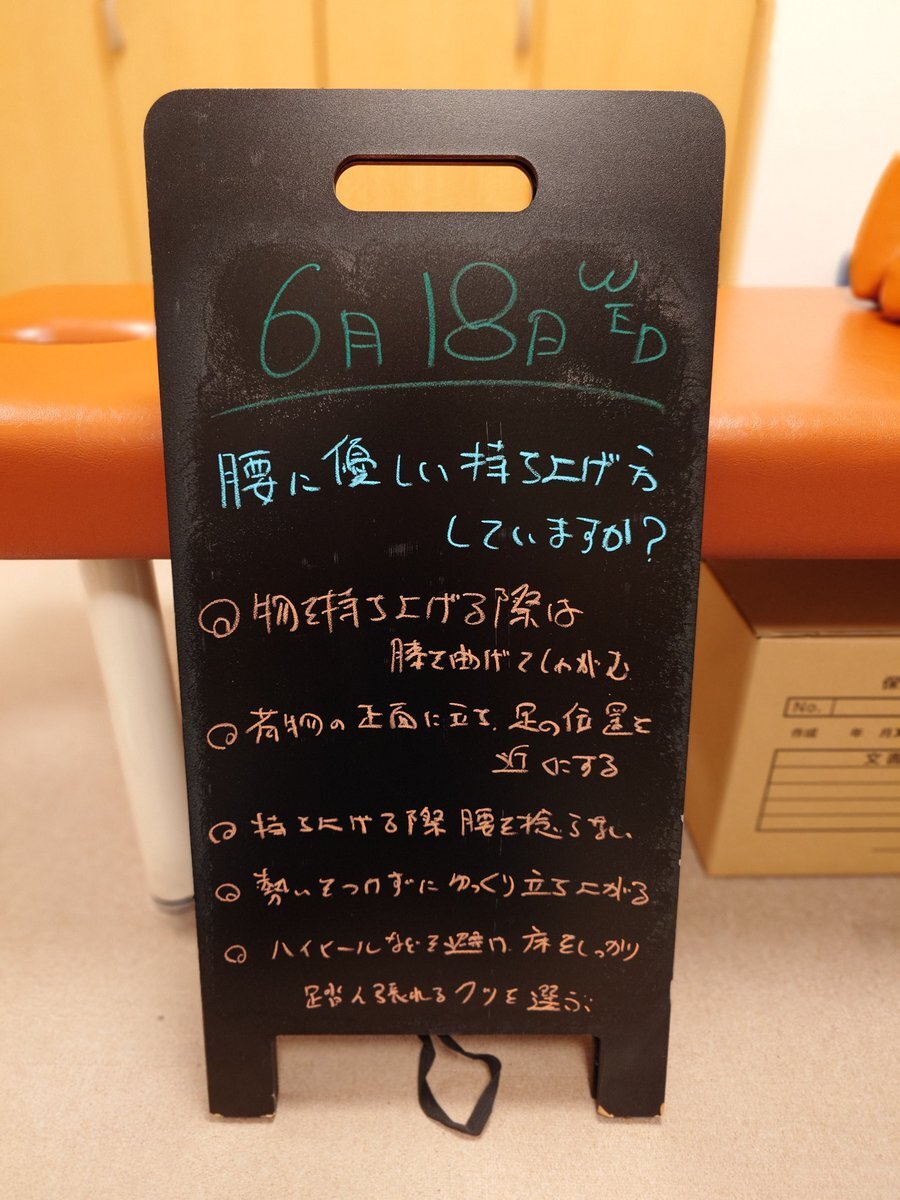 6月18日 WED
腰に優しい持ち上げ方
していますか?
物を持ち上げる際は
膝を曲げてしゃがむ
荷物の正面に立ち、足の位置を
近くにする
持ち上げる際腰を捻らない
勢いをつけずにゆっくり立ち上がる
ハイヒールなどを避け、床をしっかり
踏ん張れるクツを選ぶ
No.
作成 年 月
文書